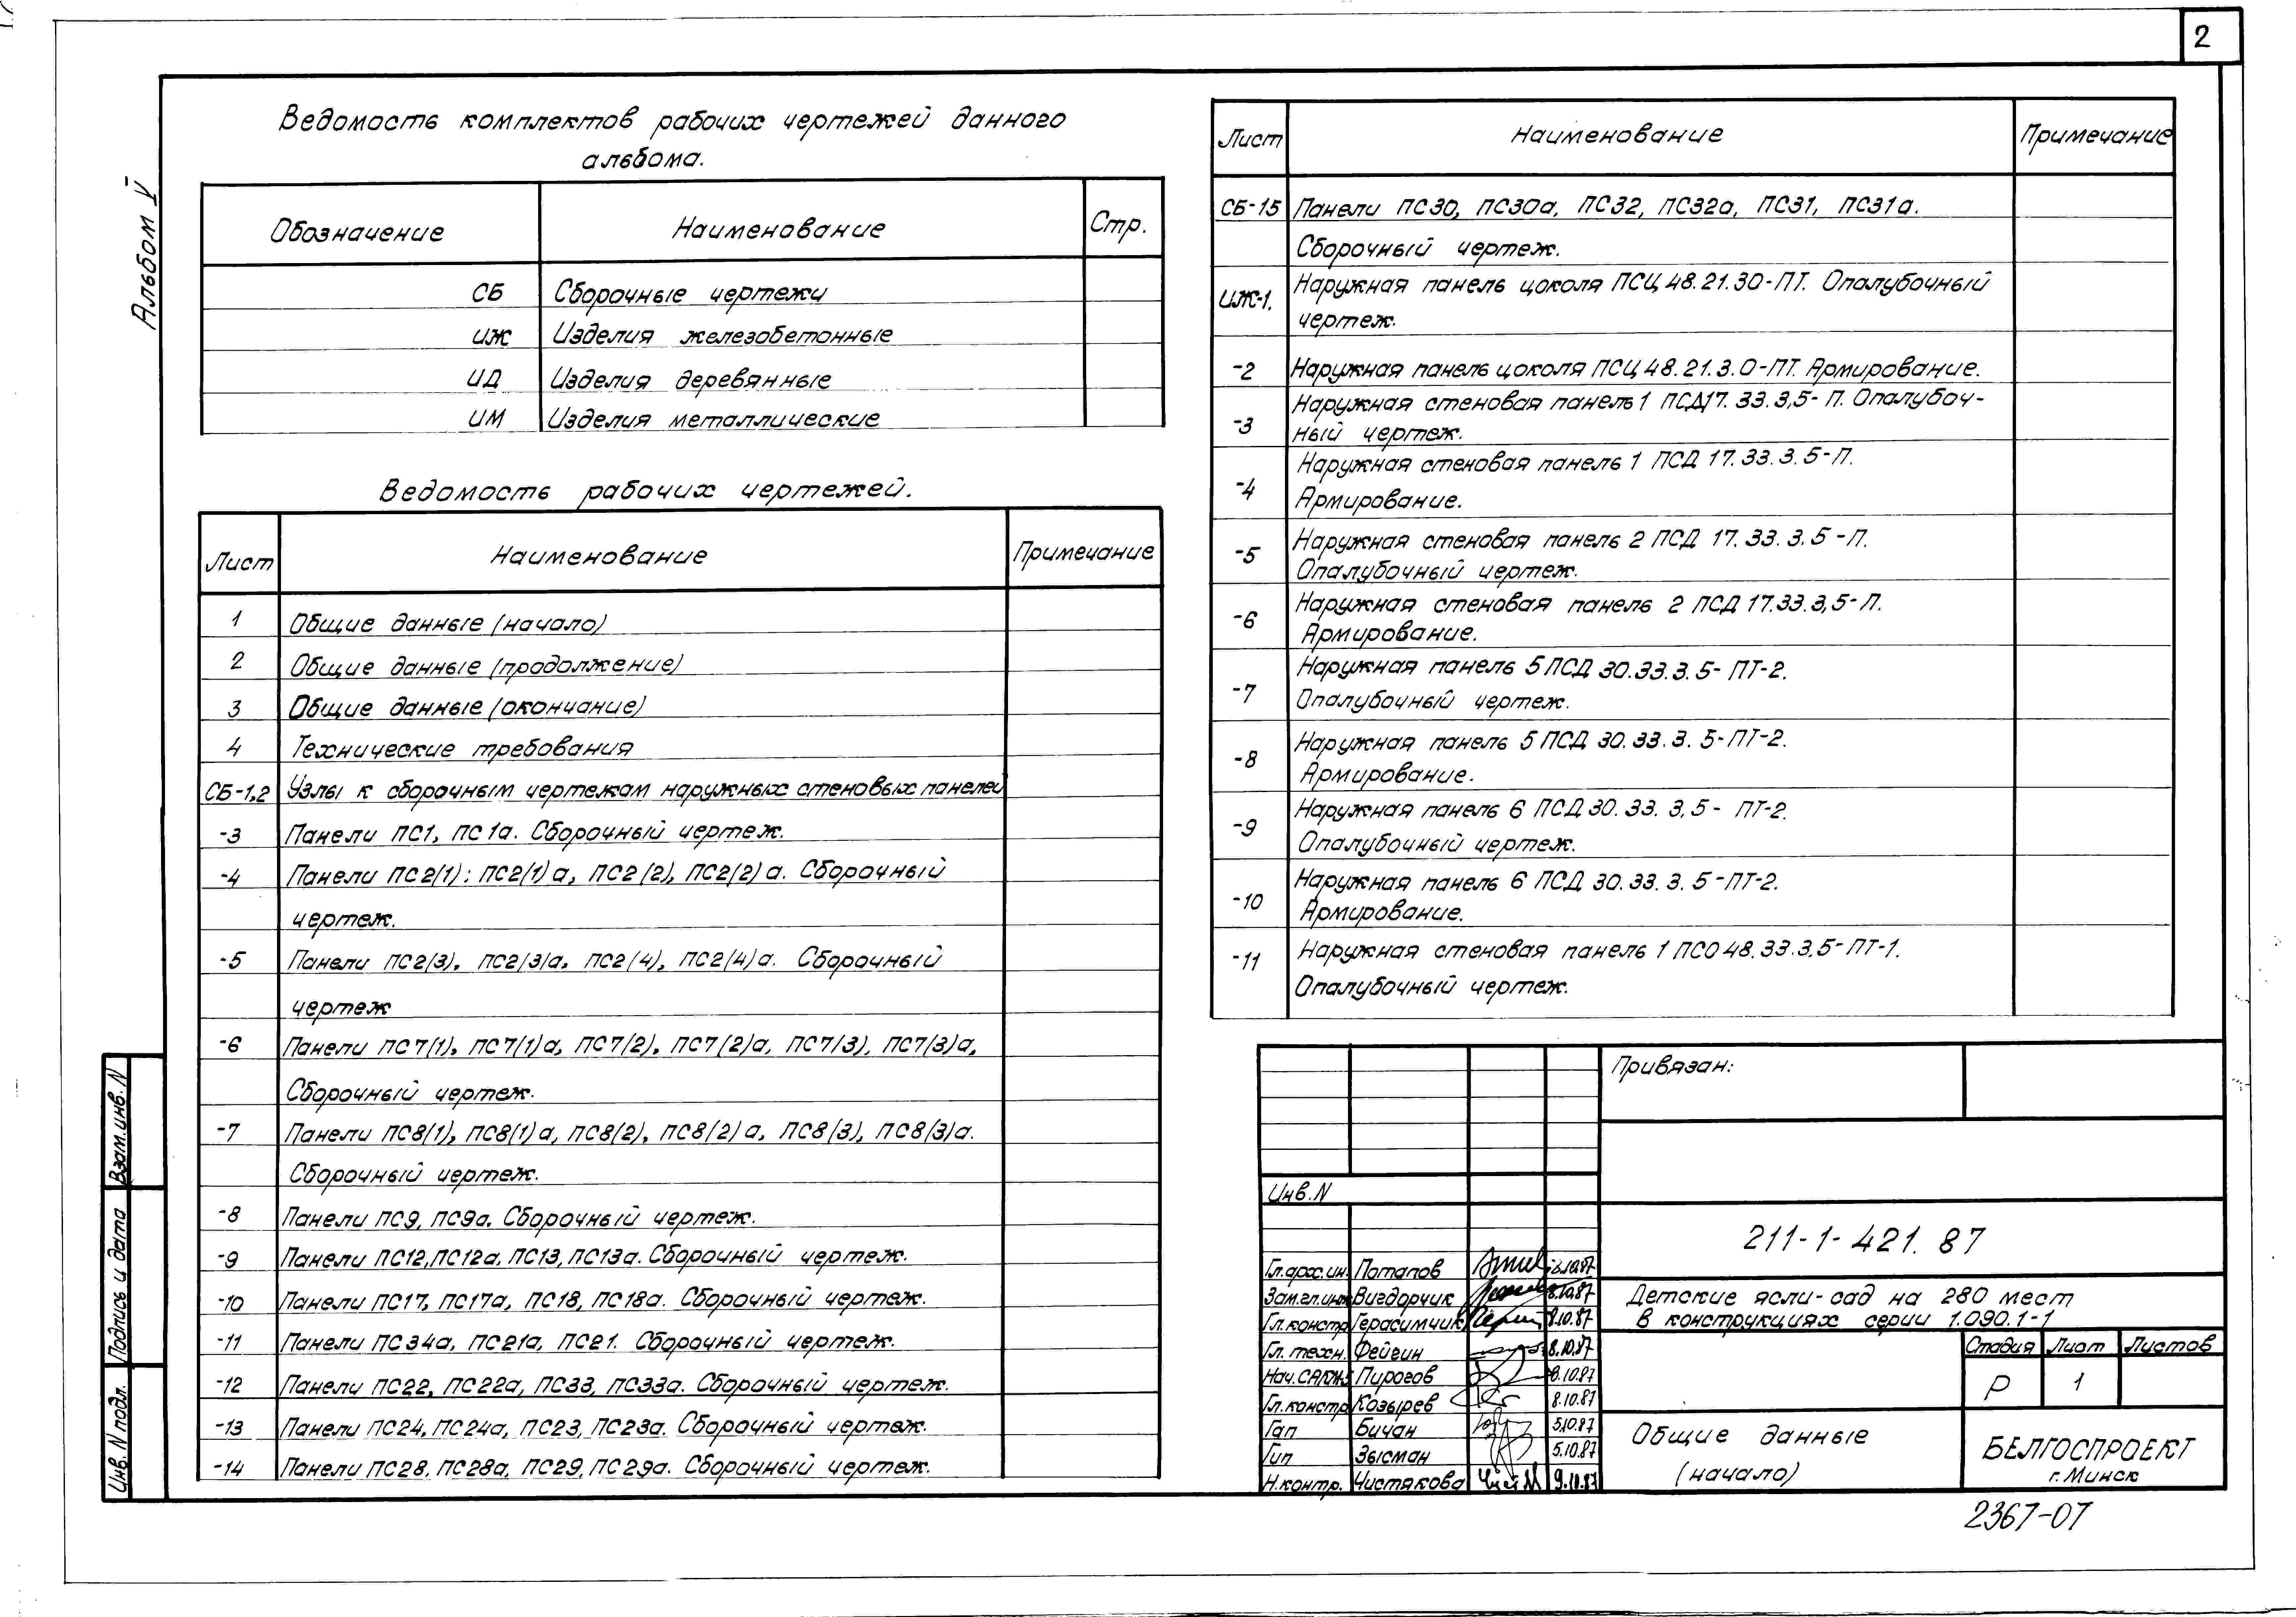 2
Альбом V
Ведомость комплектов рабочих чертежей данного
альбома.
Обозначение Наименование Стр.
СБ Сборочные чертежи
ИЖ Изделия железобетонные
ИД Изделия деревянные
ИМ Изделия металлические
Ведомость рабочих чертежей.
Лист Наименование Примечание
1 Общие данные (начало)
2 Общие данные (продолжение)
3 Общие данные (окончание)
4 Технические требования
СБ-1,2 Узлы к сборочным чертежам наружных стеновых панелей
-3 Панели ПС1, ПС1а. Сборочный чертеж.
-4 Панели ПС2(1); ПС2(1)а, ПС2(2), ПС2(2)а. Сборочный
чертеж.
-5 Панели ПС2(3), ПС2(3)а, ПС2(4), ПС2(4)а. Сборочный
чертеж
-6 Панели ПС7(1), ПС7(1)а, ПС7(2), ПС7(2)а, ПС7(3), ПС7(3)а,
Сборочный чертеж.
-7 Панели ПС8(1), ПС8(1)а, ПС8(2), ПС8(2)а, ПС8(3), ПС8(3)а.
Сборочный чертеж.
-8 Панели ПС9, ПС9а. Сборочный чертеж.
-9 Панели ПС12, ПС12а, ПС13, ПС13а. Сборочный чертеж.
-10 Панели ПС17, ПС17а, ПС18, ПС18а. Сборочный чертеж.
-11 Панели ПС34а, ПС21а, ПС21. Сборочный чертеж.
-12 Панели ПС22, ПС22а, ПС33, ПС33а. Сборочный чертеж.
-13 Панели ПС24, ПС24а, ПС23, ПС23а. Сборочный чертеж.
-14 Панели ПС28, ПС28а, ПС29, ПС29а. Сборочный чертеж.
Лист Наименование Примечание
СБ-15 Панели ПС30, ПС30а, ПС32, ПС32а, ПС31, ПС31а.
Сборочный чертеж.
ИЖ-1. Наружная панель цоколя ПСЦ 48.21.30-ПТ. Опалубочный
чертеж.
-2 Наружная панель цоколя ПСЦ 48.21.3.0-ПТ. Армирование.
-3 Наружная стеновая панель 1 ПСД17.33.3,5-П. Опалубоч-
ный чертеж.
-4 Наружная стеновая панель 1 ПСД 17.33.3.5-П.
Армирование.
-5 Наружная стеновая панель 2 ПСД 17.33.3.5-П.
Опалубочный чертеж.
-6 Наружная стеновая панель 2 ПСД 17.33.3,5-П.
Армирование.
-7 Наружная панель 5 ПСД 30.33.3.5-ПТ-2.
Опалубочный чертеж.
-8 Наружная панель 5 ПСД 30.33.3.5-ПТ-2.
Армирование.
-9 Наружная панель 6 ПСД 30.33.3,5-ПТ-2.
Опалубочный чертеж.
-10 Наружная панель 6 ПСД 30.33.3.5-ПТ-2.
Армирование.
-11 Наружная стеновая панель 1 ПСО 48.33.3,5-ПТ-1.
Опалубочный чертеж.
Привязан:
Инв.N
211-1-421.87
Гл.арх.ин. Потапов
Зам.гл.инж Вигдорчик 8.10.87
Гл.констр Герасимчик 8.10.87
Гл. техн. Фейгин 8.10.87
Нач. Пирогов 8.10.87
Гл.констр Козырев 8.10.87
Гап Бичан 5.10.87
Гип Зысман 5.10.87
Н.контр. Чистякова 9.10.87
Детские ясли-сад на 280 мест
в конструкциях серии 1.090.1-1
Стадия Лист Листов
Р 1
Общие данные
(начало)
БЕЛГОСПРОЕКТ
г. Минск
2367-07
Взам.инв.N
Подпись и дата
Инв.N подл.